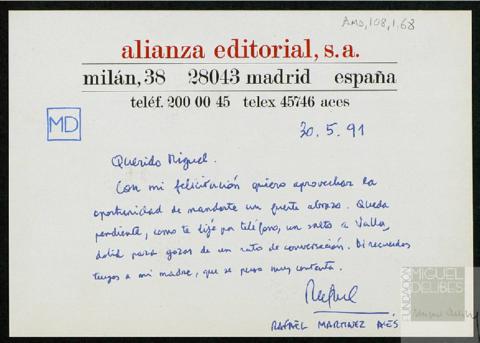 AMD,108,1,68
alianza editorial, s.a.
milán, 38 28043 madrid españa
teléf. 200 00 45 telex 45746 aees
MD
30.5.91
Querido Miguel.
Con mi felicitación quiero aprovechar la
oportunidad de mandarte un fuerte abrazo. Queda
pendiente, como te dije por teléfono, un salto a Valla,
dolid para gozar de un rato de conversación. Di recuerdos
tuyos a mi madre, que se puso muy contenta.
Rafael
RAFAEL MARTINEZ ALES
FUNDACIÓN
MIGUEL
DELIBES